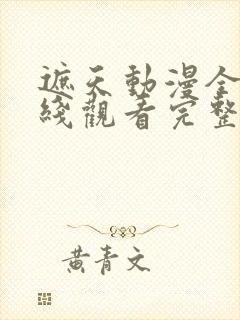 遮天動漫全
綫觀看完整
黃青文